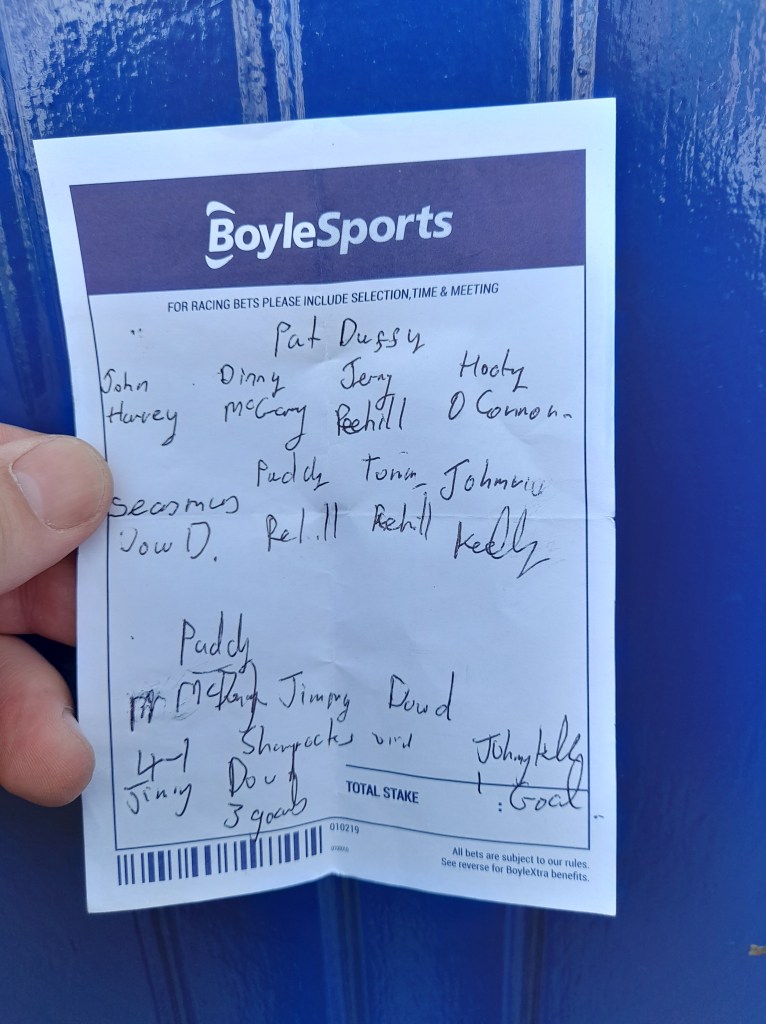 BoyleSports
FOR RACING BETS PLEASE INCLUDE SELECTION,TIME & MEETING
Pat Duffy
John Dinny Jerry Hooty
Harvey McGary Rehill O Connor
Paddy Tom Johnny
Seasmus
Dow D. Rehill Rehill Kelly
Paddy
Jimmy Dowd
4-1 Shamrocks Johny Kelly
Jimmy Dowd 1 : Goal
3 goals
TOTAL STAKE
010219
All bets are subject to our rules.
See reverse for BoyleXtra benefits.